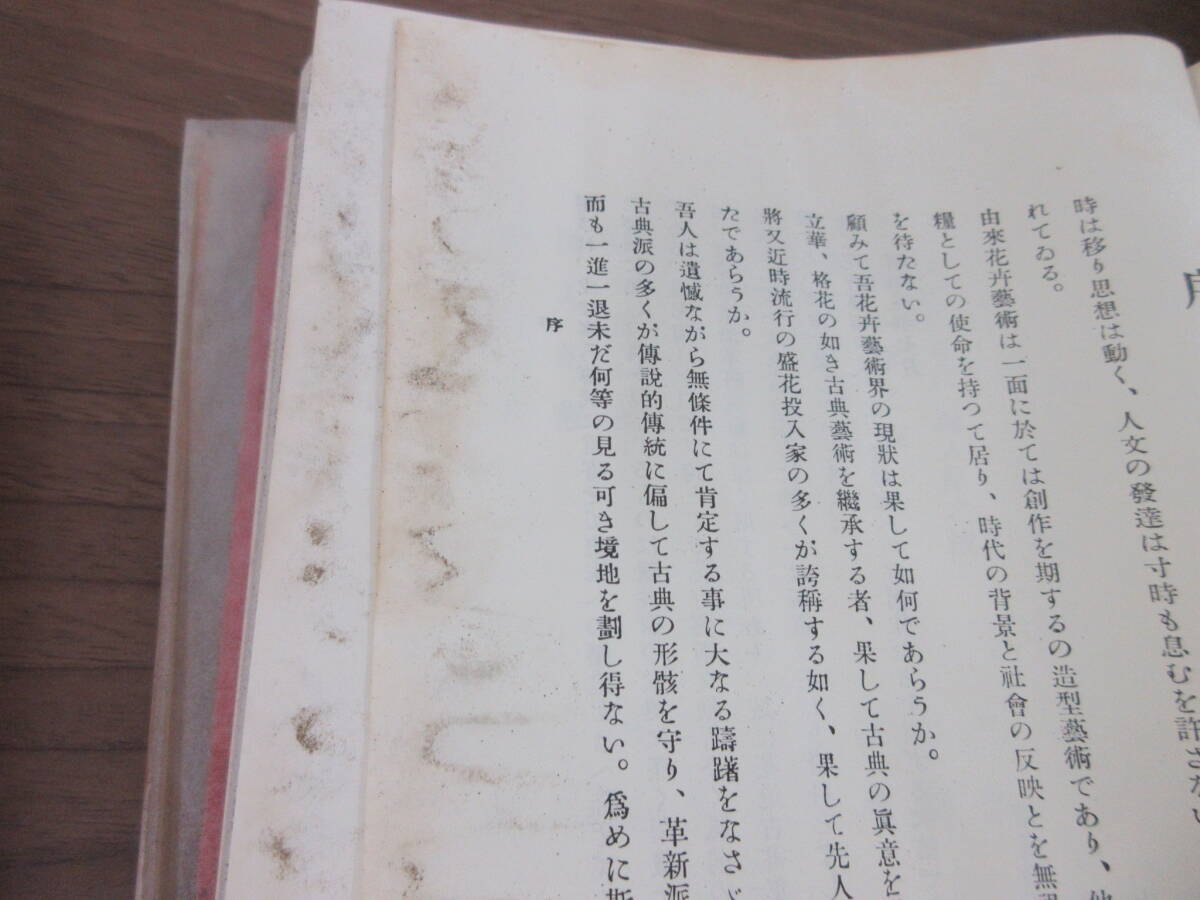 序
時は移り思想は動く、人文の發達は寸時も息むを許さない
れてゐる。
由來花卉藝術は一面に於ては創作を期するの造型藝術であり、他
糧としての使命を持つて居り、時代の背景と社會の反映とを無視
を待たない。
顧みて吾花卉藝術界の現狀は果して如何であらうか。
立華、格花の如き古典藝術を繼承する者、果して古典の眞意を
將又近時流行の盛花投入家の多くが誇稱する如く、果して先人
たであらうか。
吾人は遺憾ながら無條件にて肯定する事に大なる躊躇をなさ
古典派の多くが傳說的傳統に偏して古典の形骸を守り、革新派
而も一進一退未だ何等の見る可き境地を劃し得ない。爲めに斯
序